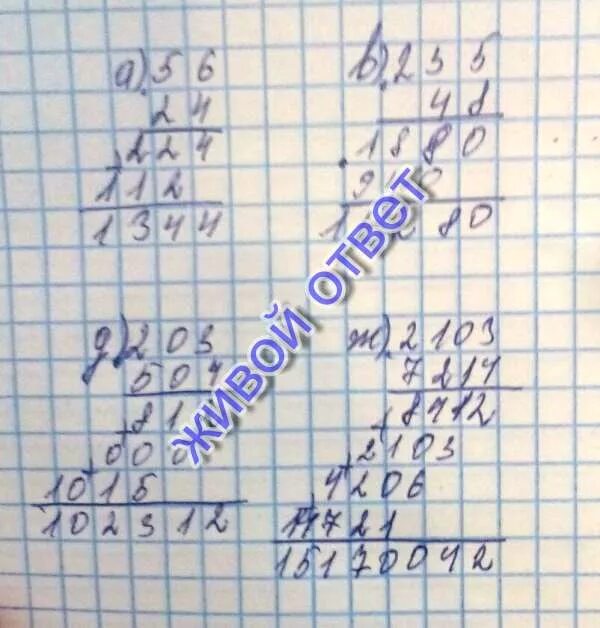 а) 56
24
224
112
1344
в) 235
48
1880
940
11280
д) 203
504
81
000
1015
102312
ж) 2103
7214
8412
2103
4206
14721
15170042
живой ответ